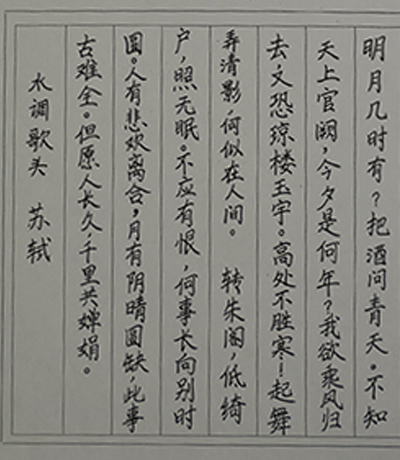 明月几时有?把酒问青天。不知
天上官阙,今夕是何年?我欲乘风归
去,又恐琼楼玉宇。高处不胜寒!起舞
弄清影,何似在人间。 转朱阁,低绮
户,照无眠。不应有恨,何事长向别时
圆。人有悲欢离合,月有阴晴圆缺,此事
古难全。但愿人长久,千里共婵娟。
水调歌头 苏轼